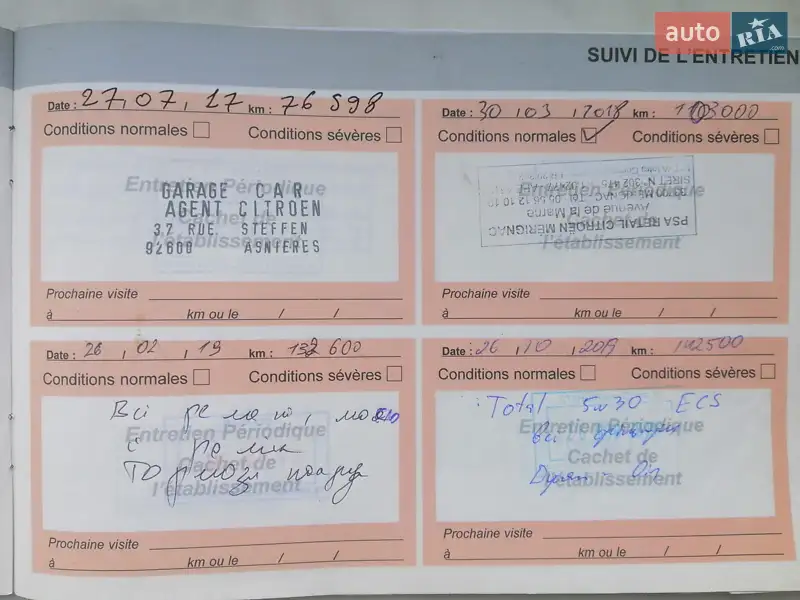 auto RIA.com
SUIVI DE L'ENTRETIEN
Date : 27,07,17 km : 76 598
Conditions normales Conditions sévères
Entretien Périodique
Cachet de
l'établissement
GARAGE CAR
AGENT CITROEN
37 RUE STEFFEN
92600 ASNIERES
Prochaine visite
à km ou le / /
Date : 30,03,2018 km : 103000
Conditions normales Conditions sévères
PSA RETAIL CITROËN MÉRIGNAC
Avenue de la Marne
l'établissement
Prochaine visite
à km ou le / /
Date : 26,02,19 km : 132 600
Conditions normales Conditions sévères
Всі
Entretien Périodique
Cachet de
l'établissement
Prochaine visite
à km ou le / /
Date : 26,10,2019 km : 142500
Conditions normales Conditions sévères
Total 5w30 ECS
Entretien Périodique
Cachet de
l'établissement
Prochaine visite
à km ou le / /